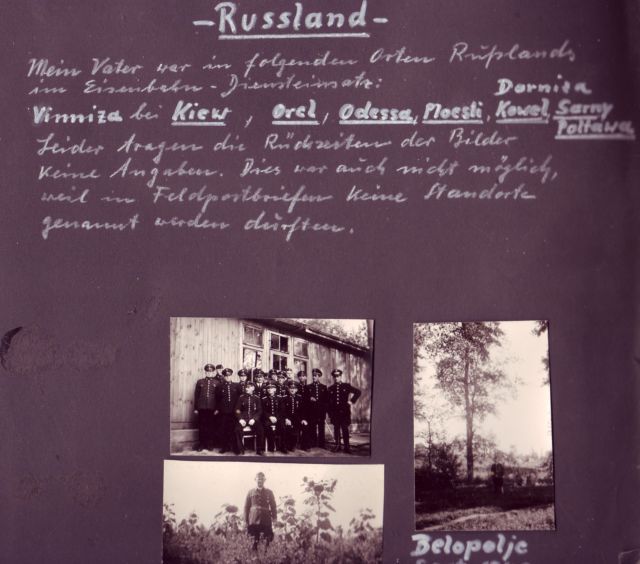 -Russland-
Mein Vater war in folgenden Orten Rußlands
im Eisenbahn-Diensteinsatz:
Darniza
Vinniza bei Kiew, Orel, Odessa, Ploesti, Kowel, Sarny
Poltawa
Leider tragen die Rückseiten der Bilder
keine Angaben. Dies war auch nicht möglich,
weil in Feldpostbriefen keine Standorte
genannt werden durften.
Belopolje